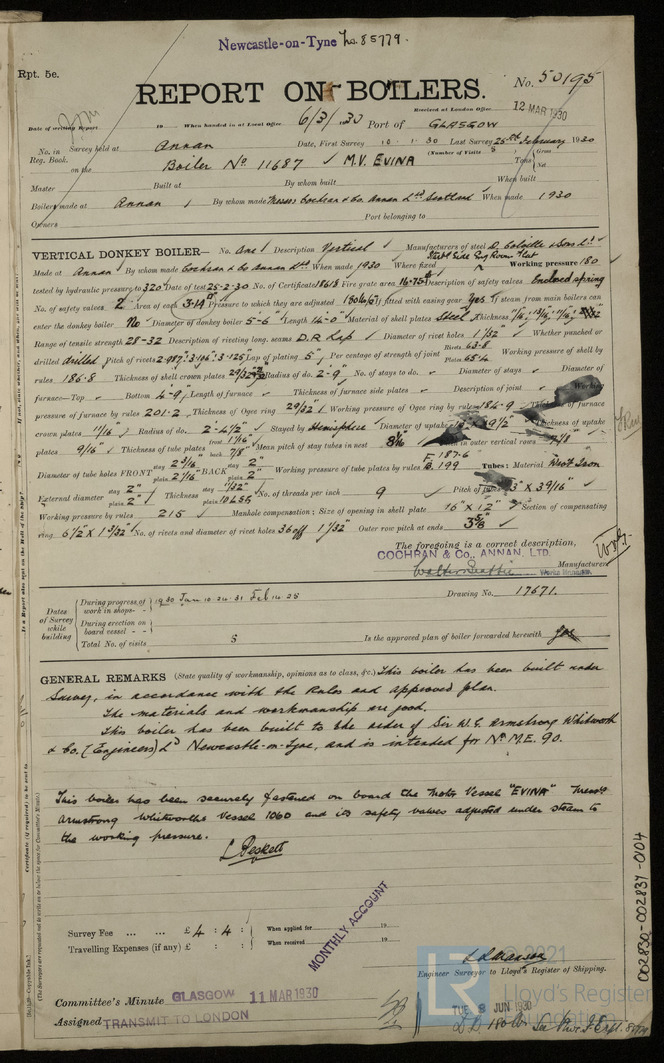 Newcastle-on-Tyne No. 85779.
Rpt. 5e.
REPORT ON BOILERS.
No. 50195
Received at London Office 12 MAR 1930
Date of writing Report 19 When handed in at Local Office 6/3/1930 Port of GLASGOW
No. in Reg. Book. Survey held at Annan Date, First Survey 10.1.30 Last Survey 25th February 1930
on the Boiler No. 11687 M.V. EVINA (Number of Visits 5) Gross Tons Net
Master Built at By whom built When built
Boilers made at Annan By whom made Messrs Cochran & Co. Annan Ltd Scotland When made 1930
Owners Port belonging to
VERTICAL DONKEY BOILER— No. One Description Vertical Manufacturers of steel D. Colville & Sons Ld.
Made at Annan By whom made Cochran & Co Annan Ltd. When made 1930 Where fixed Stbd Side Eng Room Flat Working pressure 180
tested by hydraulic pressure to 320 Date of test 25-2-30 No. of Certificate 18613 Fire grate area 16.75 Description of safety valves Enclosed spring
No. of safety valves 2 Area of each 3.14 Pressure to which they are adjusted 180 lb If fitted with easing gear Yes If steam from main boilers can
enter the donkey boiler No Diameter of donkey boiler 5'-6" Length 14'-0" Material of shell plates Steel Thickness
Range of tensile strength 28-32 Description of riveting long. seams D.R. Lap Diameter of rivet holes 1 1/32" Whether punched or
drilled drilled Pitch of rivets 2.987" 3.106" 3.125" Lap of plating 5" Per centage of strength of joint Rivets 63.8 Plates 65.4 Working pressure of shell by
rules 186.8 Thickness of shell crown plates 29/32" Radius of do. 2'-9" No. of stays to do. Diameter of stays Diameter of
furnace—Top Bottom 4'-9" Length of furnace Thickness of furnace side plates Description of joint Working
pressure of furnace by rules 201.2 Thickness of Ogee ring 29/32" Working pressure of Ogee ring by rules 184.9 Thickness of furnace
crown plates 11/16" Radius of do. 2'-4 1/2" Stayed by Hemisphere Diameter of uptake Thickness of uptake
plates 9/16" Thickness of tube plates front 1 1/16" back 7/8" Mean pitch of stay tubes in nest 8 1/16 in outer vertical rows 7/8"
Diameter of tube holes FRONT stay 2 3/16" plain 2 1/16" BACK stay 2" plain 2" Working pressure of tube plates by rules F. 187.6 B. 199 Tubes: Material Wrot Iron
External diameter stay 2" plain 2" Thickness stay plain 10 LSG No. of threads per inch 9 Pitch of tubes 3" X 3 9/16"
Working pressure by rules 215 Manhole compensation: Size of opening in shell plate 16" X 12" Section of compensating
ring 6 1/2" X 1 3/32" No. of rivets and diameter of rivet holes 36 off 1 1/32" Outer row pitch at ends 3 5/8
The foregoing is a correct description,
COCHRAN & Co., ANNAN, LTD.
Works Manager. Manufacturer
Dates of Survey while building
During progress of work in shops - - 1930 Jan 10. 24. 31 Feb 14. 25
During erection on board vessel - - -
Total No. of visits 5
Drawing No. 17671.
Is the approved plan of boiler forwarded herewith
GENERAL REMARKS (State quality of workmanship, opinions as to class, &c.) This boiler has been built under
Survey, in accordance with the Rules and approved plan.
The materials and workmanship are good.
This boiler has been built to the order of Sir W.G. Armstrong Whitworth
& Co. (Engineers) Ld Newcastle-on-Tyne, and is intended for No. M.E. 90.
This boiler has been securely fastened on board the Motor Vessel "EVINA" Messrs
Armstrong Whitworths Vessel 1060 and its safety valves adjusted under steam to
the working pressure.
L Beskett
Survey Fee ... ... £ 4 : 4 : When applied for 19
Travelling Expenses (if any) £ : : When received 19
MONTHLY ACCOUNT
Engineer Surveyor to Lloyd's Register of Shipping.
Committee's Minute GLASGOW 11 MAR 1930
Assigned TRANSMIT TO LONDON
TUE 3 JUN 1930
LR © 2021 Lloyd's Register Foundation
002830-002837-0104